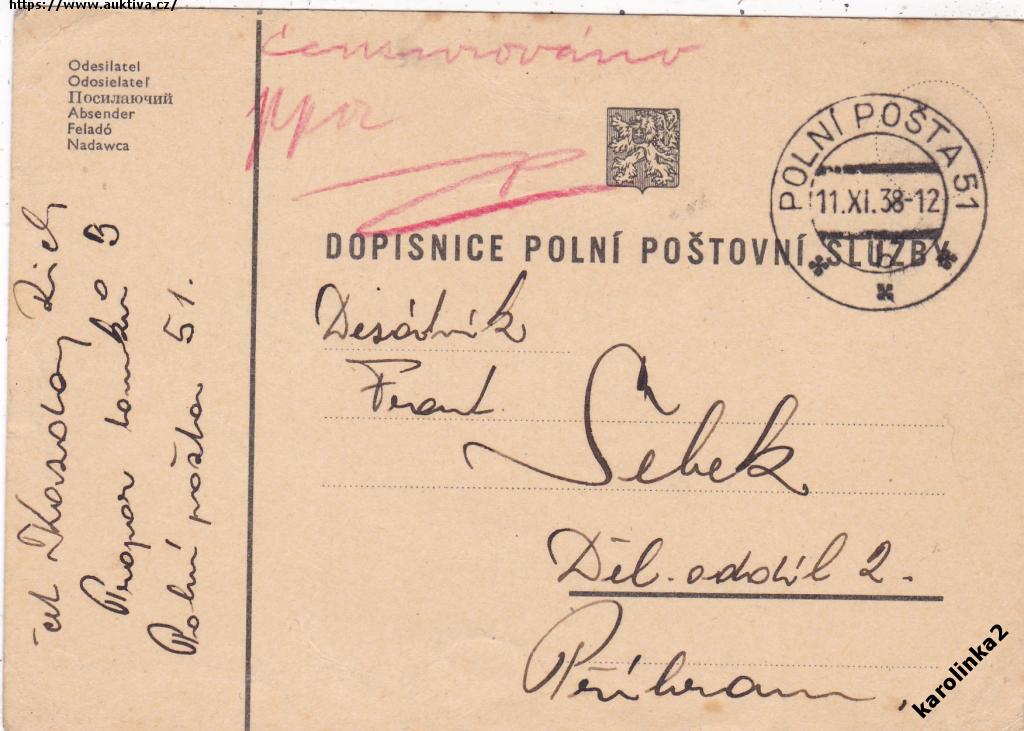 https://www.auktiva.cz/
Odesilatel
Odosielateľ
Посилаючий
Absender
Feladó
Nadawca
čet Rich
Prapor tanků B
Polní pošta 51.
cenzurováno
ppor
POLNÍ POŠTA 51
11.XI.38-12
b
DOPISNICE POLNÍ POŠTOVNÍ SLUŽBY
Desátník
Frant.
Šebek
Děl. oddíl 2.
Příbram,
karolinka2